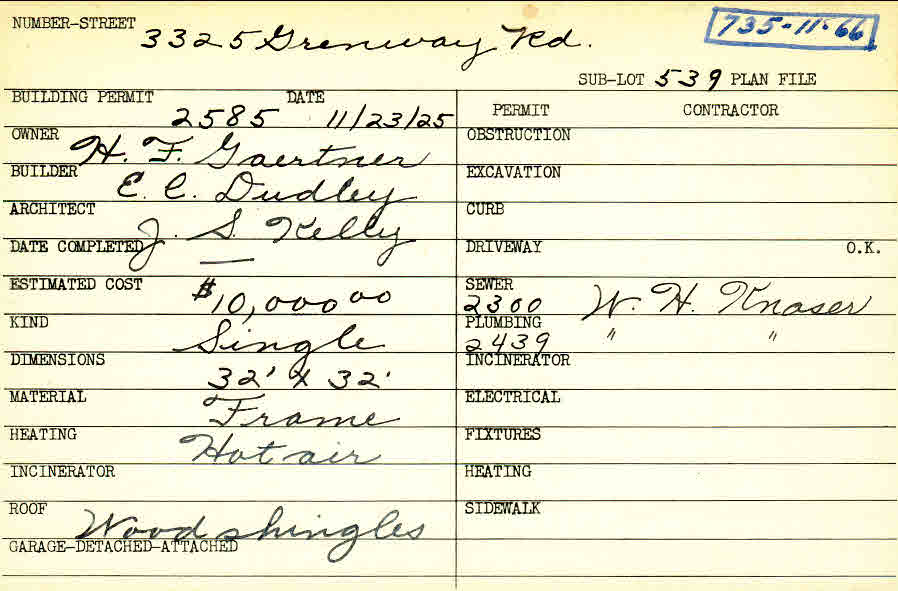 NUMBER-STREET 3325 Grenway Rd. 735-11-66
SUB-LOT 539 PLAN FILE
BUILDING PERMIT 2585 DATE 11/23/25
PERMIT CONTRACTOR
OWNER H. F. Gaertner
OBSTRUCTION
BUILDER E. C. Dudley
EXCAVATION
ARCHITECT J. S. Kelly
CURB
DATE COMPLETED —
DRIVEWAY O.K.
ESTIMATED COST $10,000 00
SEWER 2300 W. H. Knaser
KIND Single
PLUMBING 2439 " "
DIMENSIONS 32' X 32'
INCINERATOR
MATERIAL Frame
ELECTRICAL
HEATING Hot air
FIXTURES
INCINERATOR
HEATING
ROOF Wood shingles
SIDEWALK
GARAGE-DETACHED-ATTACHED